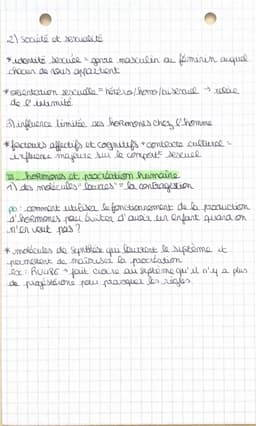 2) Société et sexualité
* identité sexuée = genre masculin ou féminin auquel
chacun de nous appartient
* orientation sexuelle = hétéro/homo/bisexuel → relève
de l'intimité
3) influence limitée des hormones chez l'homme
* facteurs affectifs et cognitifs + contexte culturel =
influence majeure sur le comport sexuel
II. hormones et procréation humaine
1) des molécules "leurres" = la contragestion
pb : comment utiliser le fonctionnement de la production
d'hormones pour éviter d'avoir un enfant quand on
n'en veut pas ?
* molécules de synthèse qui leurrent le système et
permettent de maîtriser la procréation
ex : RU486 → fait croire au système qu'il n'y a plus
de progestérone pour provoquer les règles